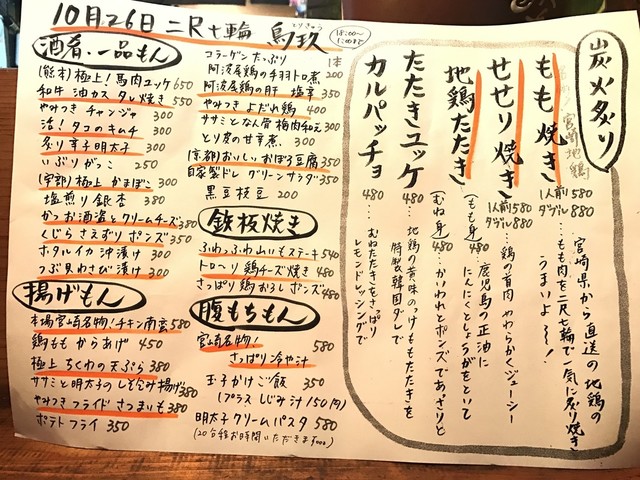 10月26日 二尺七輪 鳥玖
とりきゅう
18:00〜
酒肴・一品もん
(熊本)極上!馬肉ユッケ 650
和牛 油カス タレ焼き 550
やみつき チャンジャ 300
活!タコのキムチ 300
炙り辛子明太子 300
いぶりがっこ 250
(宇部)極上 かまぼこ 300
塩煎り銀杏 380
かつお酒盗とクリームチーズ 380
くじら さえずり ポンズ 350
ホタルイカ 沖漬け 300
つぶ貝わさび漬け 300
コラーゲン たっぷり 1本
阿波尾鶏の手羽トロ煮 200
阿波尾鶏の肝 塩辛 350
やみつき よだれ鶏 400
ササミとなん骨 梅肉和え 300
とり皮の甘辛煮 300
(京都)おいしいおぼろ豆腐 350
自家製ドレ グリーンサラダ 350
黒豆枝豆 200
鉄板焼き
ふわっふわ山いもステーキ 540
トロ〜リ 鶏チーズ焼き 480
さっぱり 鶏おろし ポンズ 480
揚げもん
本場宮崎名物!チキン南蛮 580
鶏もも からあげ 450
極上 ちくわの天ぷら 380
ササミと明太子のしそ包み揚げ 380
やみつき フライド さつまいも 380
ポテトフライ 350
腹もちもん
宮崎名物!
さっぱり 冷や汁 580
玉子かけご飯 350
(プラス しじみ汁 150円)
明太子クリームパスタ 580
(20分程お時間いただきます)
炭火炙り
宮崎地鶏
もも焼き 1人前 580 ダブル 880
…宮崎県から直送の地鶏の
もも肉を二尺七輪で一気に炙り焼き
うまいよ〜!
せせり焼き 1人前 580 ダブル 880
…鶏の首肉 やわらかくジューシー
地鶏たたき (もも身) 480
…鹿児島の正油に
にんにくとしょうがをといて
(むね身) 480
…かいわれとポンズであっさりと
たたきユッケ 480
…地鶏の黄味のっけ ももたたきを
特製韓国ダレで
カルパッチョ 480
…むねたたきをさっぱり
レモンドレッシングで